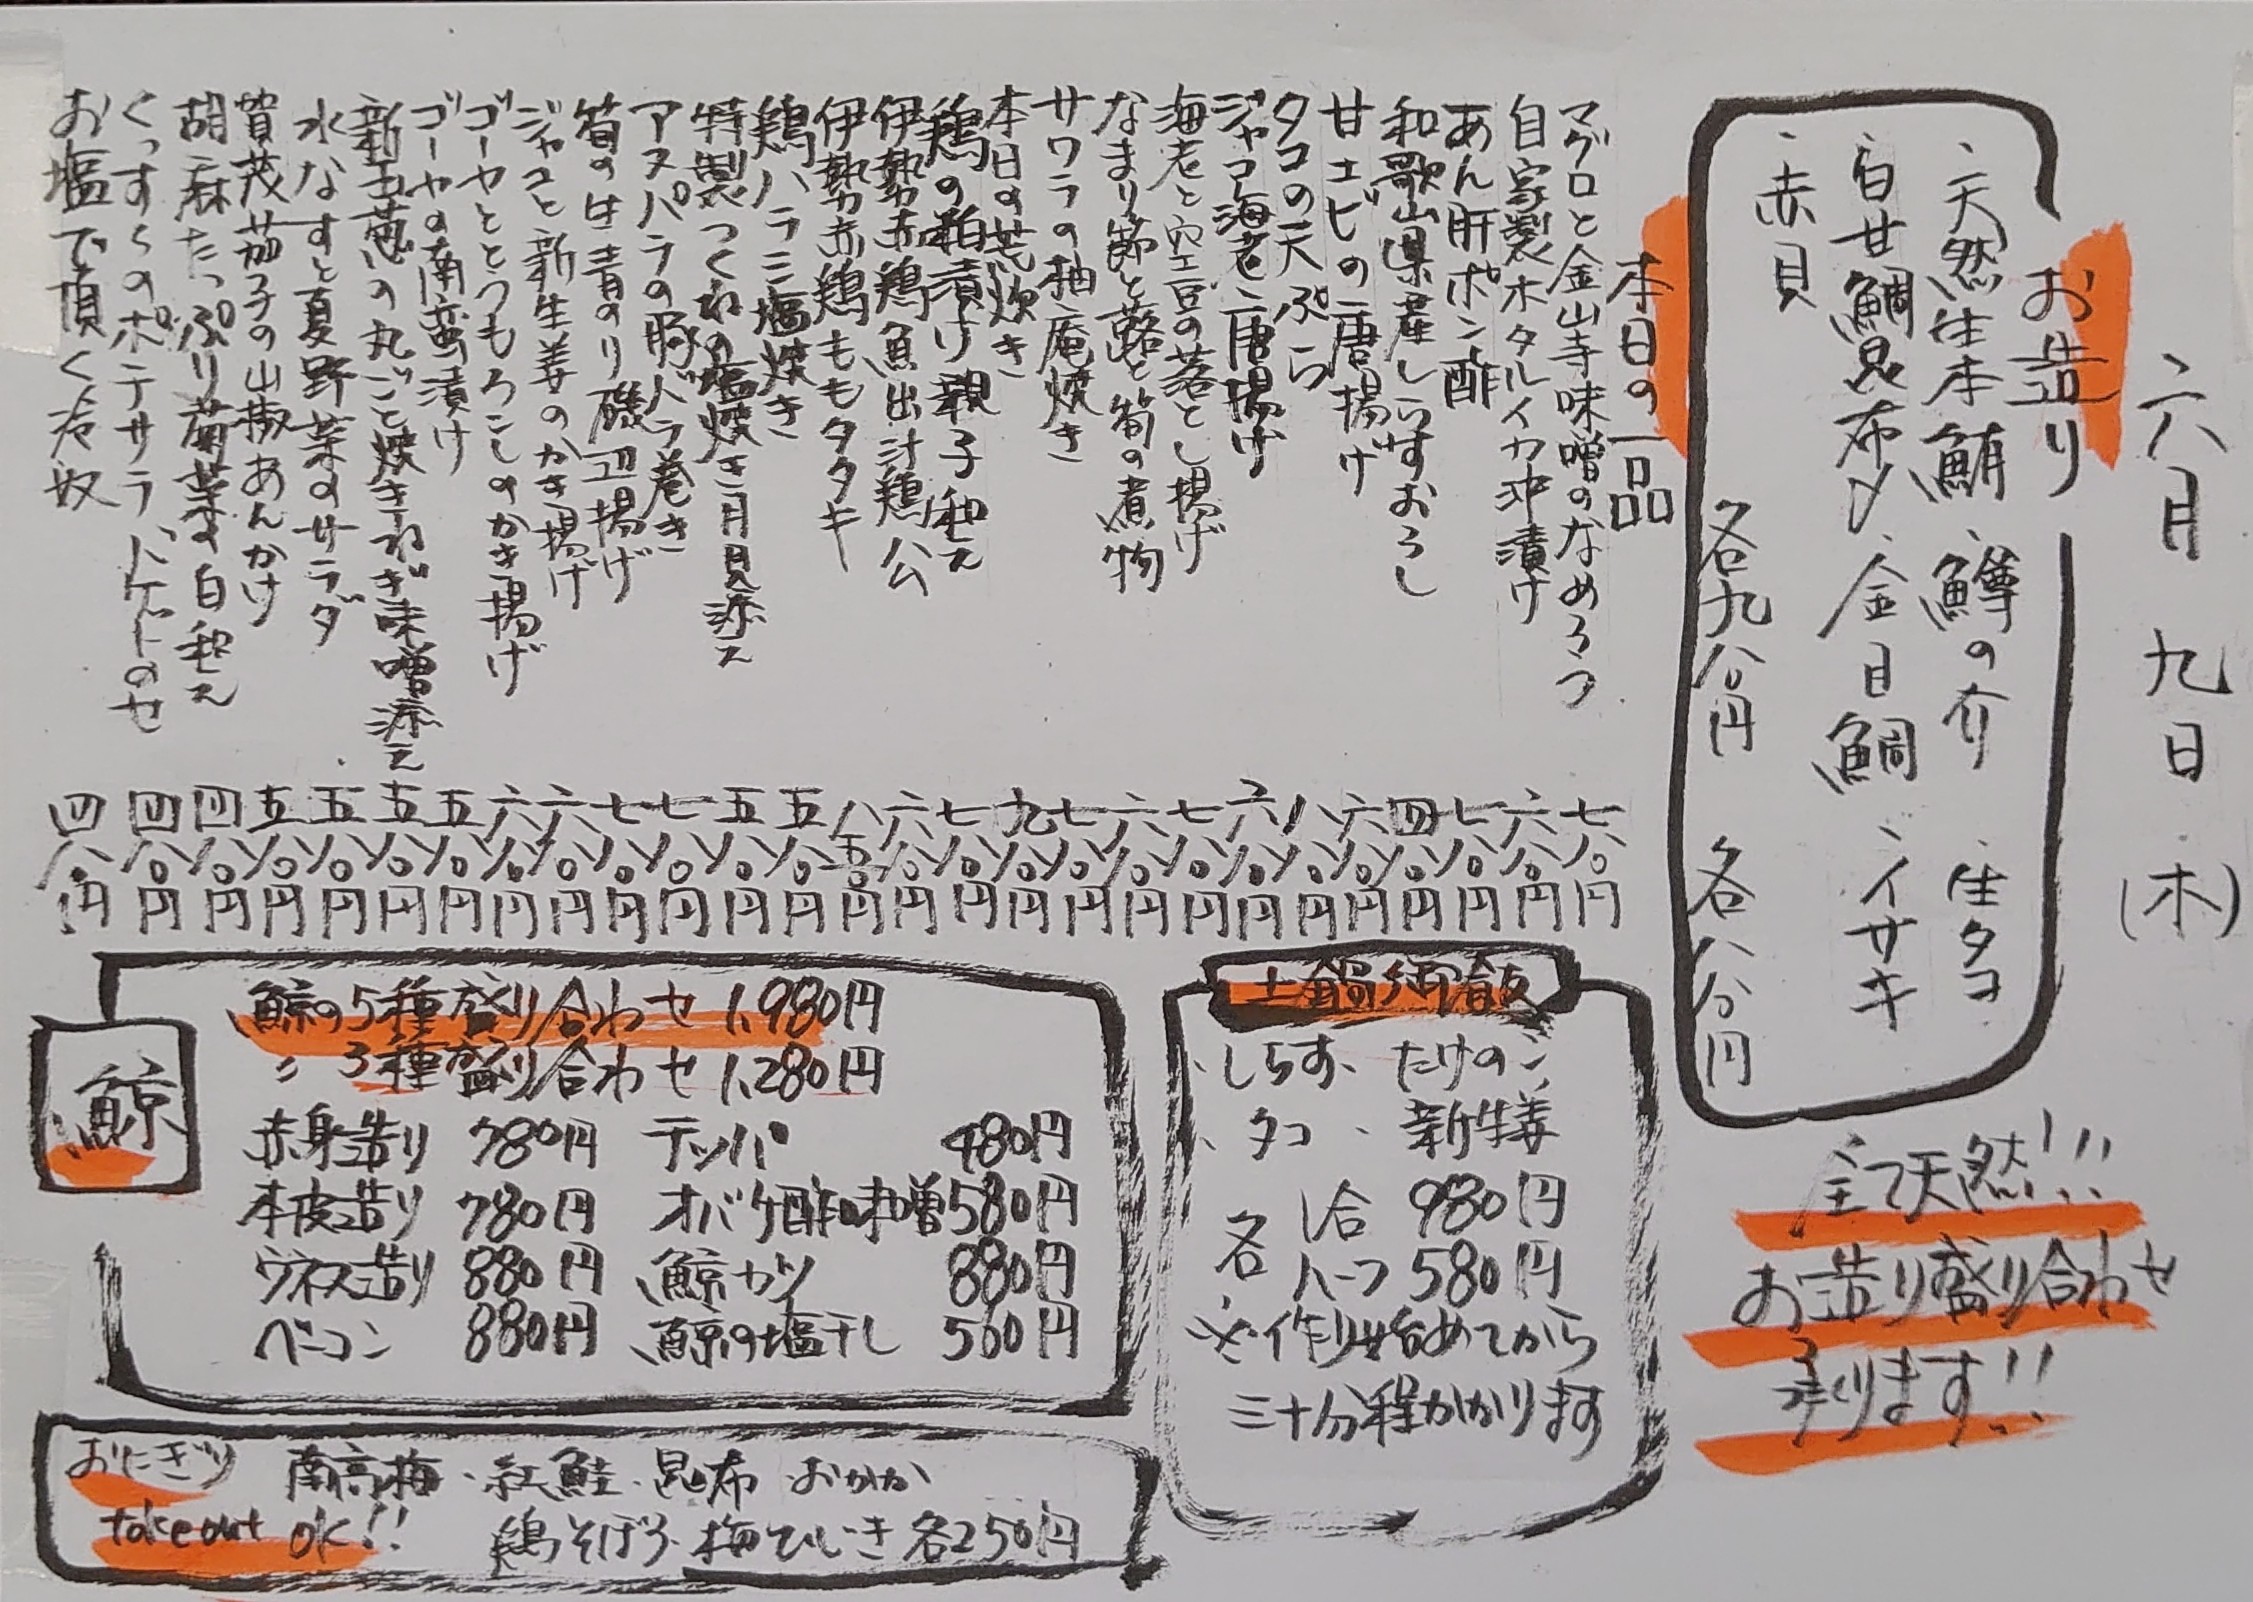 六月九日(木)
お造り
、天然生本鮪 、鱒の介 、生タコ
、白甘鯛昆布〆 、金目鯛 、イサキ
、赤貝
各九八〇円 各八八〇円
全て天然!!!
お造り盛り合わせ
承ります!!
本日の一品
マグロと金山寺味噌のなめろう 七八〇円
自家製ホタルイカ沖漬け 六八〇円
あん肝ポン酢 七八〇円
和歌山県産しらすおろし 四八〇円
甘エビの唐揚げ 六八〇円
タコの天ぷら 八八〇円
ジャコ海老唐揚げ 六八〇円
海老と空豆の落とし揚げ 七八〇円
なまり節と蕗と筍の煮物 六八〇円
サワラの柚庵焼き 七八〇円
本日の荒炊き 九八〇円
鶏の粕漬け親子和え 七八〇円
伊勢赤鶏魚出汁鶏公 六八〇円
伊勢赤鶏ももタタキ 八五〇円
鶏ハラミ塩焼き 五八〇円
特製つくねの塩焼き月見添え 五八〇円
アスパラの豚バラ巻き 七八〇円
筍の生青のり磯辺揚げ 七八〇円
ジャコと新生姜のかき揚げ 六八〇円
ゴーヤととうもろこしのかき揚げ 六八〇円
ゴーヤの南蛮漬け 五八〇円
新玉葱の丸ごと焼きねぎ味噌添え 五八〇円
水なすと夏野菜のサラダ 五八〇円
賀茂茄子の山椒あんかけ 五八〇円
胡麻たっぷり菊菜の白和え 四八〇円
くっすくのポテサラ、バゲットのせ 四八〇円
お塩で頂く冷奴 四八〇円
土鍋御飯
、しらす、たけのこ
、タコ 、新生姜
各 一合 980円
ハーフ 580円
※作り始めてから
三十分程かかります
鯨
鯨の5種盛り合わせ 1,980円
〃 3種盛り合わせ 1,280円
赤身造り 780円 テッパ 480円
本皮造り 780円 オバケ酢味噌 580円
ウネス造り 880円 鯨カツ 880円
ベーコン 880円 鯨の塩干し 560円
おにぎり 南高梅・紅鮭・昆布・おかか
takeout OK!! 鶏そぼろ・梅ひじき 各250円